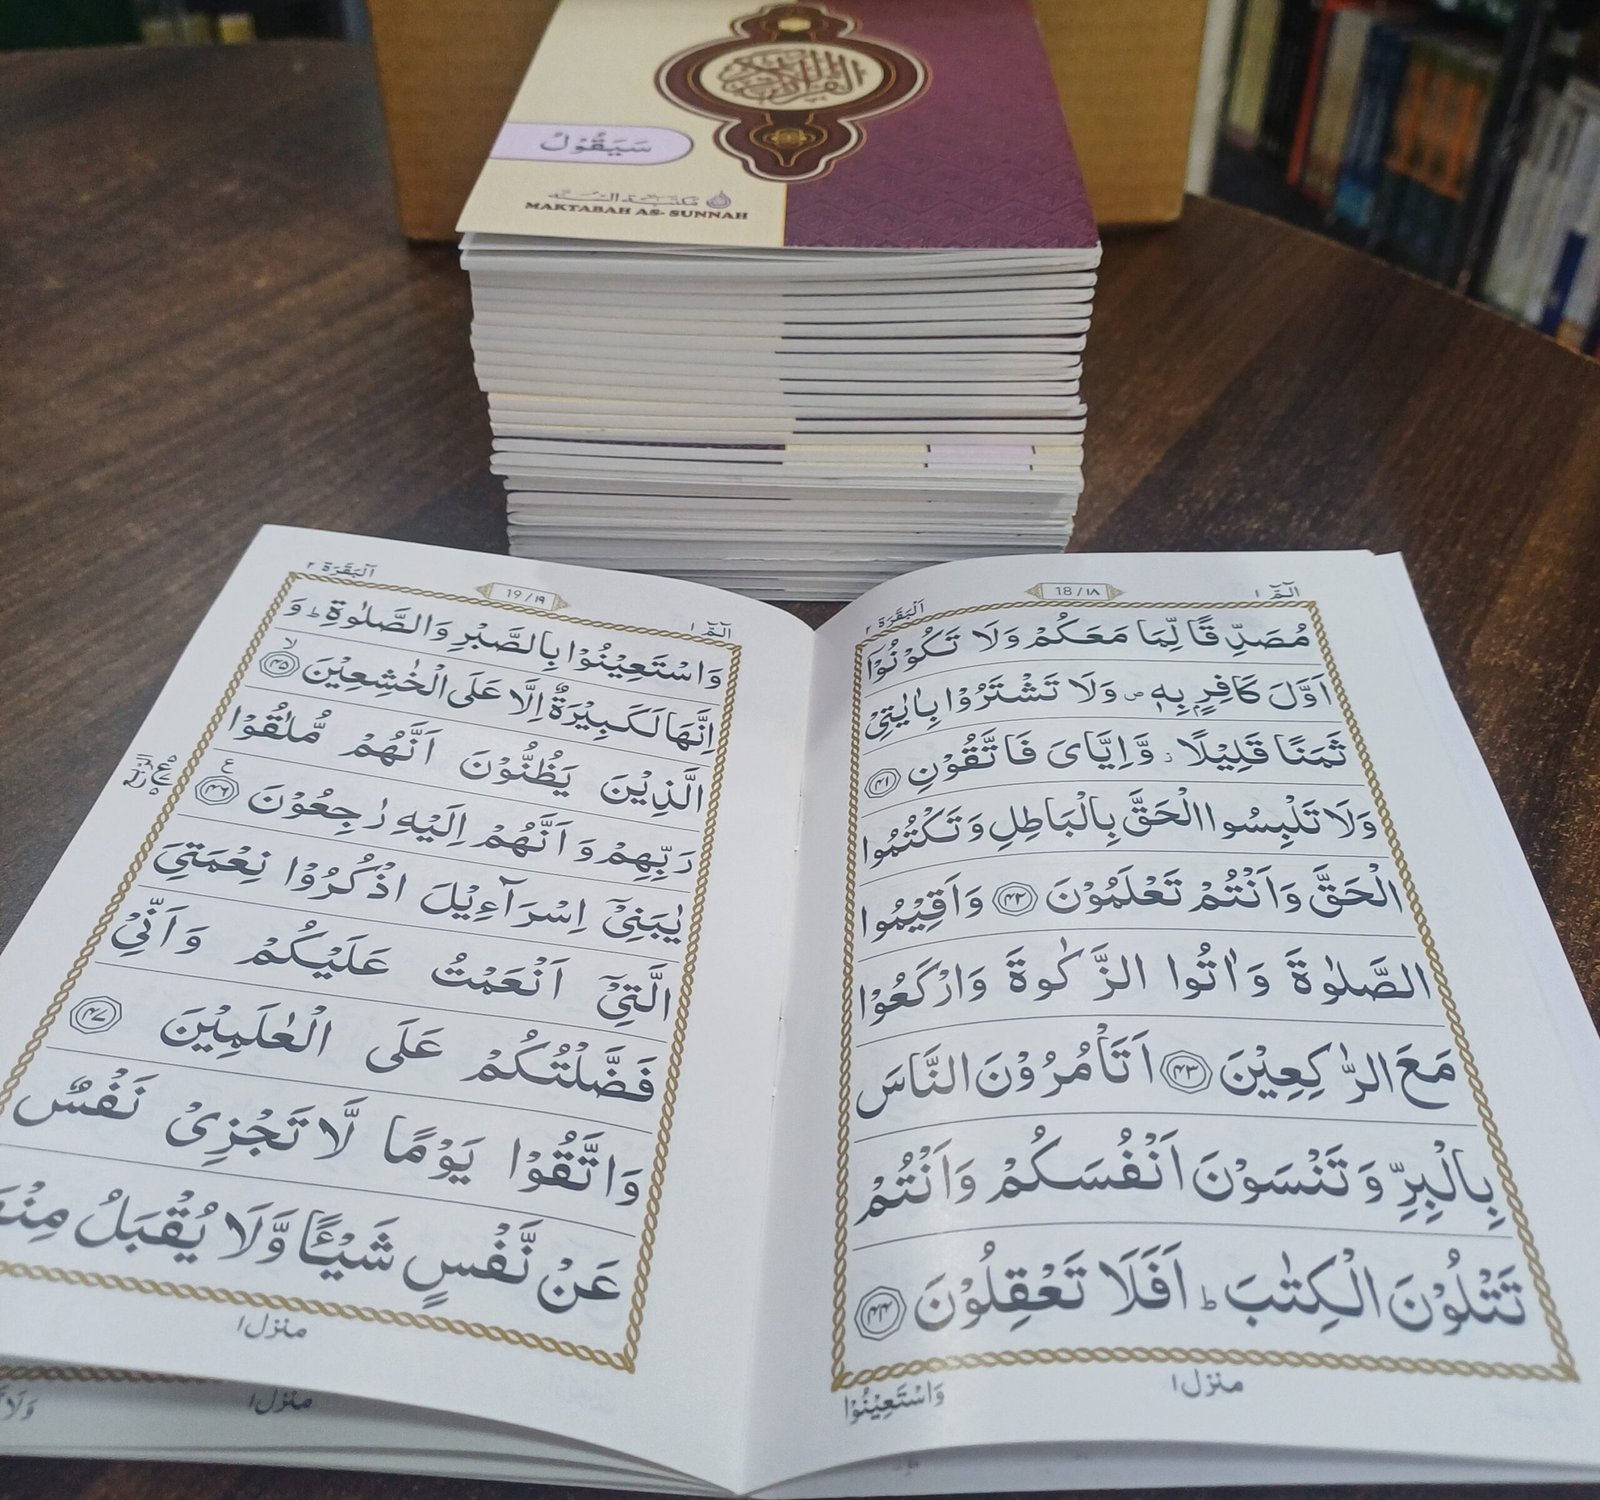 القرآن الكريم
سَيَقُوْلُ
مكتبة السنة
MAKTABAH AS-SUNNAH
الٓمّٓ ١
18/١٨
اَلْبَقَرَة ٢
مُصَدِّقًا لِّمَا مَعَكُمْ وَلَا تَكُوْنُوْٓا
اَوَّلَ كَافِرٍۭ بِهٖ ۪ وَلَا تَشْتَرُوْا بِاٰيٰتِيْ
ثَمَنًا قَلِيْلًا ؗ وَّاِيَّايَ فَاتَّقُوْنِ ۝۴۱
وَلَا تَلْبِسُوا الْحَقَّ بِالْبَاطِلِ وَتَكْتُمُوا
الْحَقَّ وَاَنْتُمْ تَعْلَمُوْنَ ۝۴۲ وَاَقِيْمُوا
الصَّلٰوةَ وَاٰتُوا الزَّكٰوةَ وَارْكَعُوْا
مَعَ الرّٰكِعِيْنَ ۝۴۳ اَتَاْمُرُوْنَ النَّاسَ
بِالْبِرِّ وَتَنْسَوْنَ اَنْفُسَكُمْ وَاَنْتُمْ
تَتْلُوْنَ الْكِتٰبَ ؕ اَفَلَا تَعْقِلُوْنَ ۝۴۴
منزل ١
وَاسْتَعِيْنُوْا
الٓمّٓ ١
19/١٩
اَلْبَقَرَة ٢
وَاسْتَعِيْنُوْا بِالصَّبْرِ وَالصَّلٰوةِ ؕ وَ
اِنَّهَا لَكَبِيْرَةٌ اِلَّا عَلَى الْخٰشِعِيْنَ ۝۴۵ۙ
الَّذِيْنَ يَظُنُّوْنَ اَنَّهُمْ مُّلٰقُوْا
رَبِّهِمْ وَاَنَّهُمْ اِلَيْهِ رٰجِعُوْنَ ۝۴۶ ع
يٰبَنِيْٓ اِسْرَآءِيْلَ اذْكُرُوْا نِعْمَتِيَ
الَّتِيْٓ اَنْعَمْتُ عَلَيْكُمْ وَاَنِّيْ
فَضَّلْتُكُمْ عَلَى الْعٰلَمِيْنَ ۝۴۷
وَاتَّقُوْا يَوْمًا لَّا تَجْزِيْ نَفْسٌ
عَنْ نَّفْسٍ شَيْـًٔا وَّلَا يُقْبَلُ
منزل ١
منزل ١